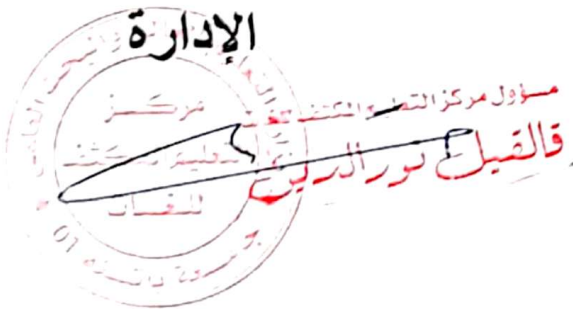 الإدارة
مسؤول مركز التعليم المكثف للغات
قالقيل نور الدين
مركز
التعليم المكثف
للغات
جامعة باتنة 01